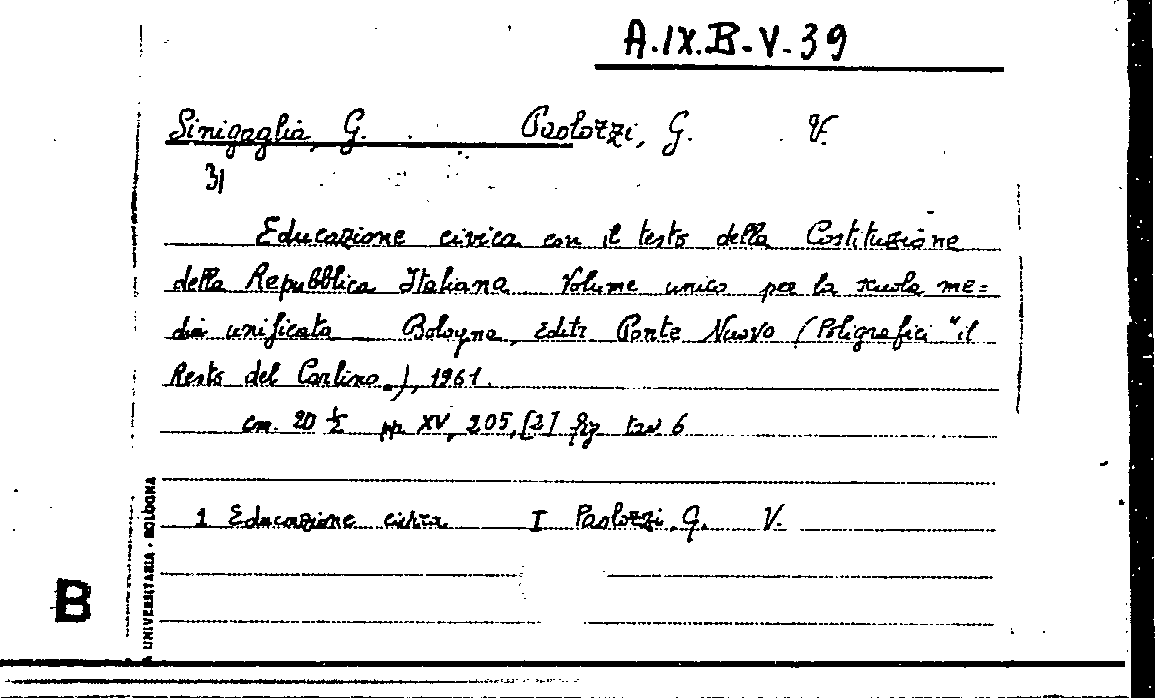 A.IX.B-V-39
Sinigaglia, G. Paolozzi, G. V.
31
Educazione civica con il testo della Costituzione
della Repubblica Italiana Volume unico per la scuola me=
dia unificata Bologna, Editr Ponte Nuovo (Poligrafici "il
Resto del Carlino„), 1961.
cm. 20 ½ pp. XV, 205, [2] fig tav 6
1 Educazione civica I Paolozzi, G. V.
B
A UNIVERSITARIA - BOLOGNA